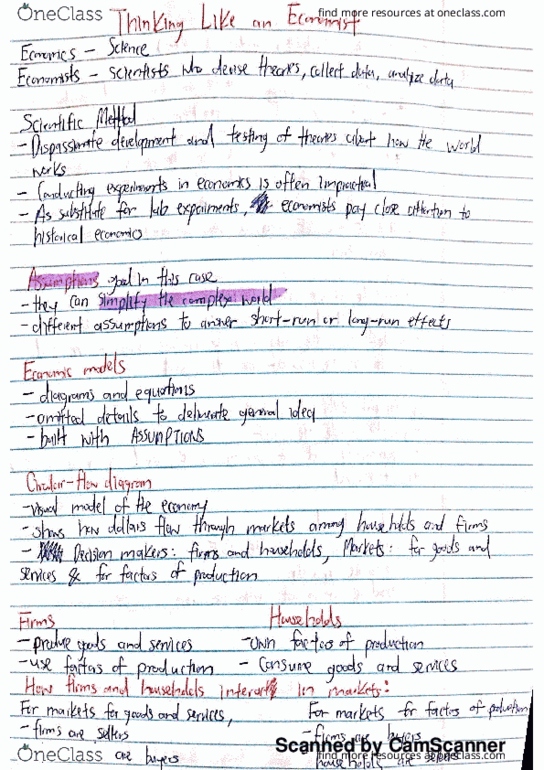 OneClass
find more resources at oneclass.com
Thinking Like an Economist
Economics - Science
Economists - Scientists who devise theories, collect data, analyze data
Scientific Method
- Dispassionate development and testing of theories about how the world
works
- Conducting experiments in economics is often impractical
- As substitute for lab experiments, economists pay close attention to
historical economics
Assumptions good in this case
- they can simplify the complex world
- different assumptions to answer short-run or long-run effects
Economic models
- diagrams and equations
- omitted details to delineate general idea
- built with ASSUMPTIONS
Circular-flow diagram
- visual model of the economy
- shows how dollars flow through markets among households and firms
- Decision makers: firms and households, Markets: for goods and
services & for factors of production
Firms Households
- produce goods and services - Own factors of production
- use factors of production - Consume goods and services
How firms and households interact in markets:
For markets for goods and services, For markets for factors of production
- firms are sellers - firms are buyers
Scanned by CamScanner
OneClass are buyers households are
find more resources at oneclass.com